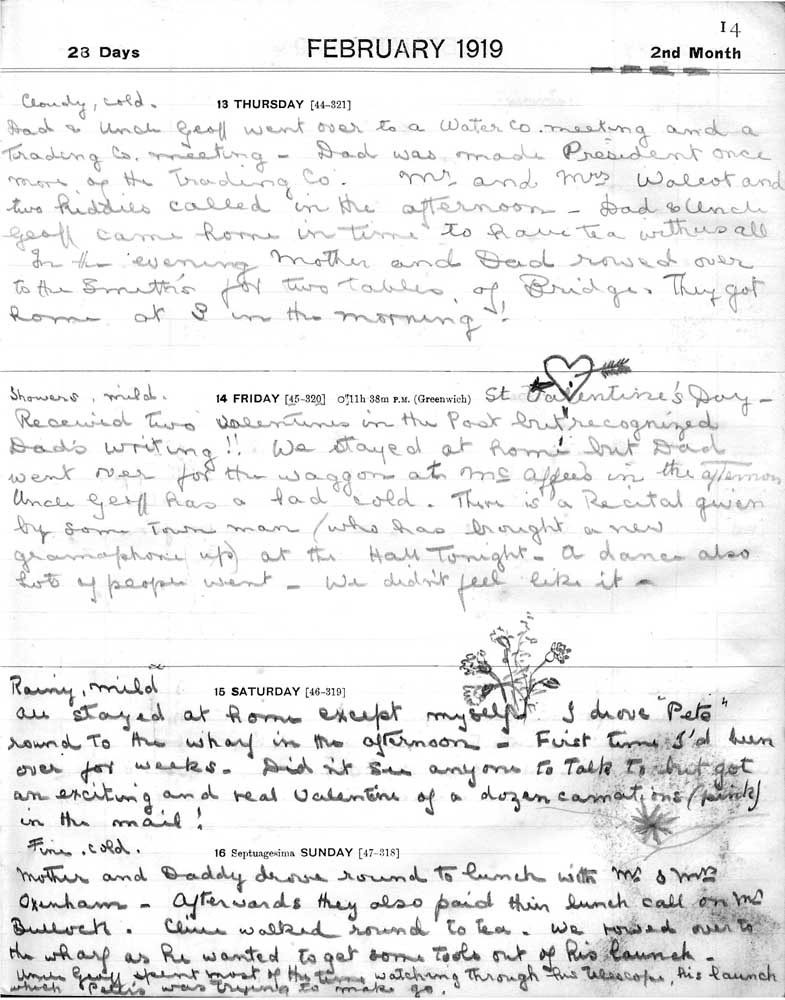 14
28 Days FEBRUARY 1919 2nd Month
Cloudy, cold. 13 THURSDAY [44-321]
Dad & Uncle Geoff went over to a Water Co. meeting and a
Trading Co. meeting - Dad was made President once
more of the Trading Co. Mr and Mrs Walcot and
two kiddies called in the afternoon - Dad & Uncle
Geoff came home in time to have tea with us all
In the evening Mother and Dad rowed over
to the Smith's for two tables of Bridge. They got
home at 3 in the morning!
Showers, mild. 14 FRIDAY [45-320] 11h 38m P.M. (Greenwich) St Valentine's Day -
Received two valentines in the Post but recognized
Dad's writing!! We stayed at home but Dad
went over for the waggon at Mc Affee's in the afternoon
Uncle Geoff has a bad cold. There is a Recital given
by some Town man (who has brought a new
gramaphone up) at the Hall Tonight - A dance also
Lots of people went - We didn't feel like it -
Rainy, mild 15 SATURDAY [46-319]
All stayed at home except myself. I drove "Pete"
round to the wharf in the afternoon - First time I'd been
over for weeks. Didn't see anyone to talk to but got
an exciting and real Valentine of a dozen carnations (pink)
in the mail!
Fine, cold. 16 Septuagesima SUNDAY [47-318]
Mother and Daddy drove round to lunch with Mr & Mrs
Oxenham - Afterwards they also paid their lunch call on Mrs
Bullock. Clive walked round to tea. We rowed over to
the wharf as he wanted to get some tools out of his launch -
Uncle Geoff spent most of the time watching through his telescope, his launch
which Pettis was trying to make go.